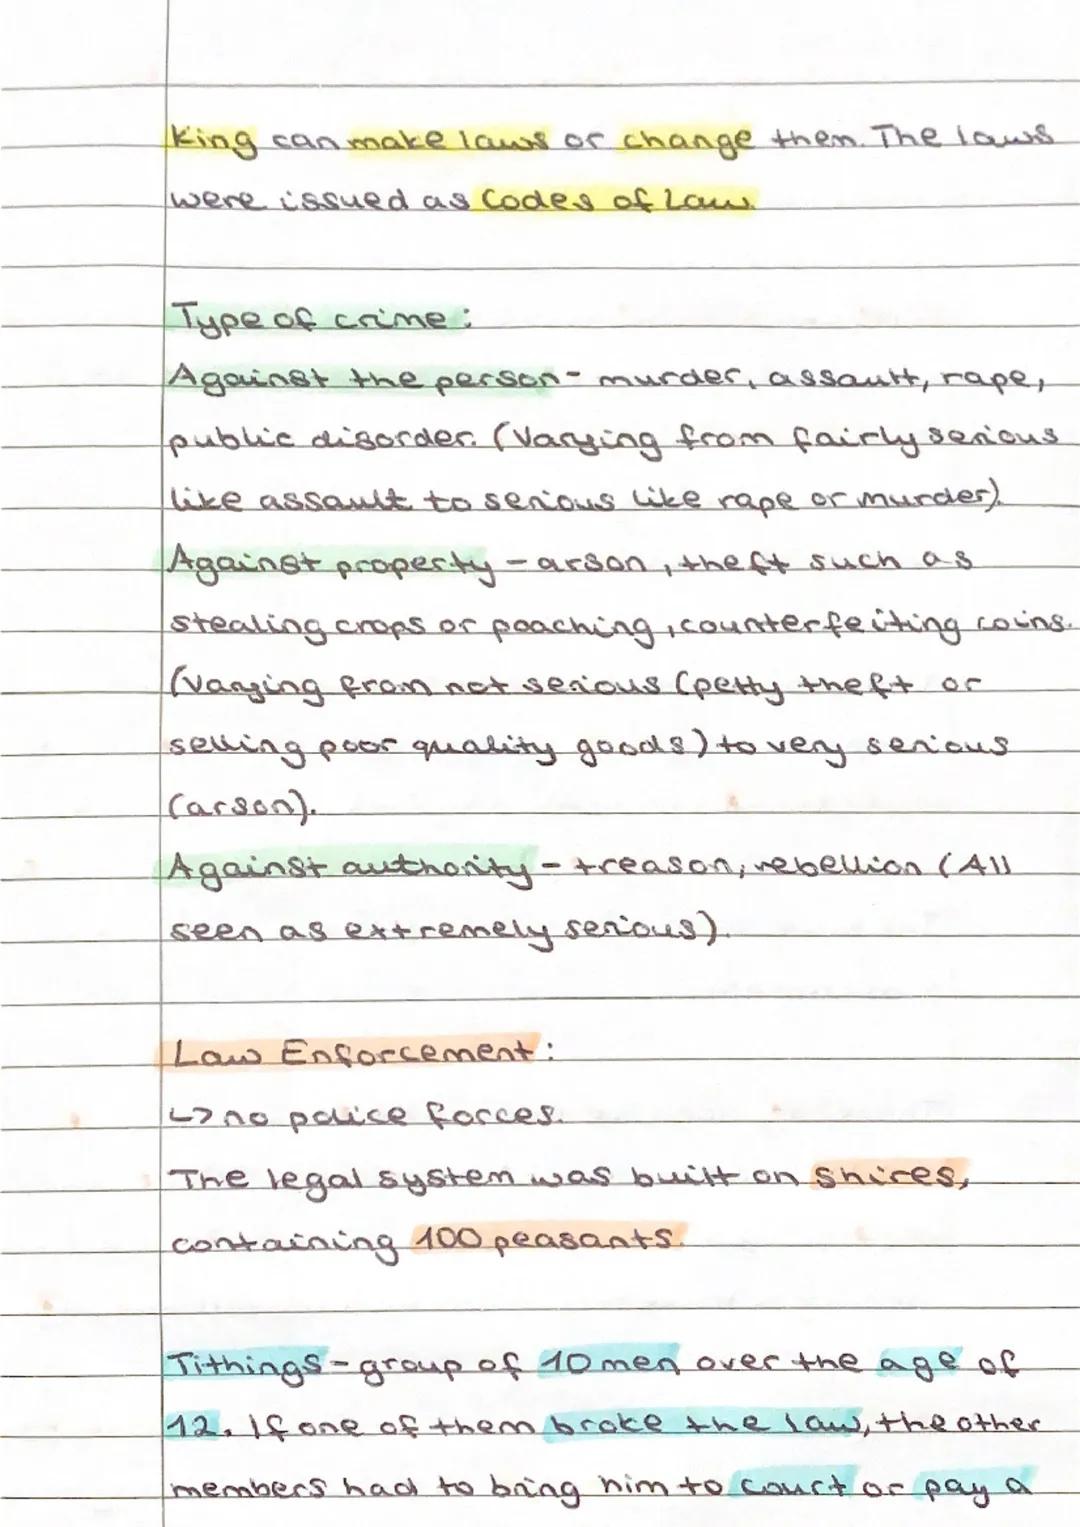 King can make laws or change them. The laws
were issued as Codes of Law.
Type of crime:
Against the person - murder, assault, rape,
public disorder. (Varying from fairly serious
like assault to serious like rape or murder).
Against property - arson, theft such as
stealing crops or poaching, counterfeiting coins.
(Varying from not serious (petty theft or
selling poor quality goods) to very serious
(arson).
Against authority - treason, rebellion (All
seen as extremely serious).
Law Enforcement:
↳ no police forces.
The legal system was built on shires,
containing 100 peasants.
Tithings - group of 10 men over the age of
12. If one of them broke the law, the other
members had to bring him to court or pay a